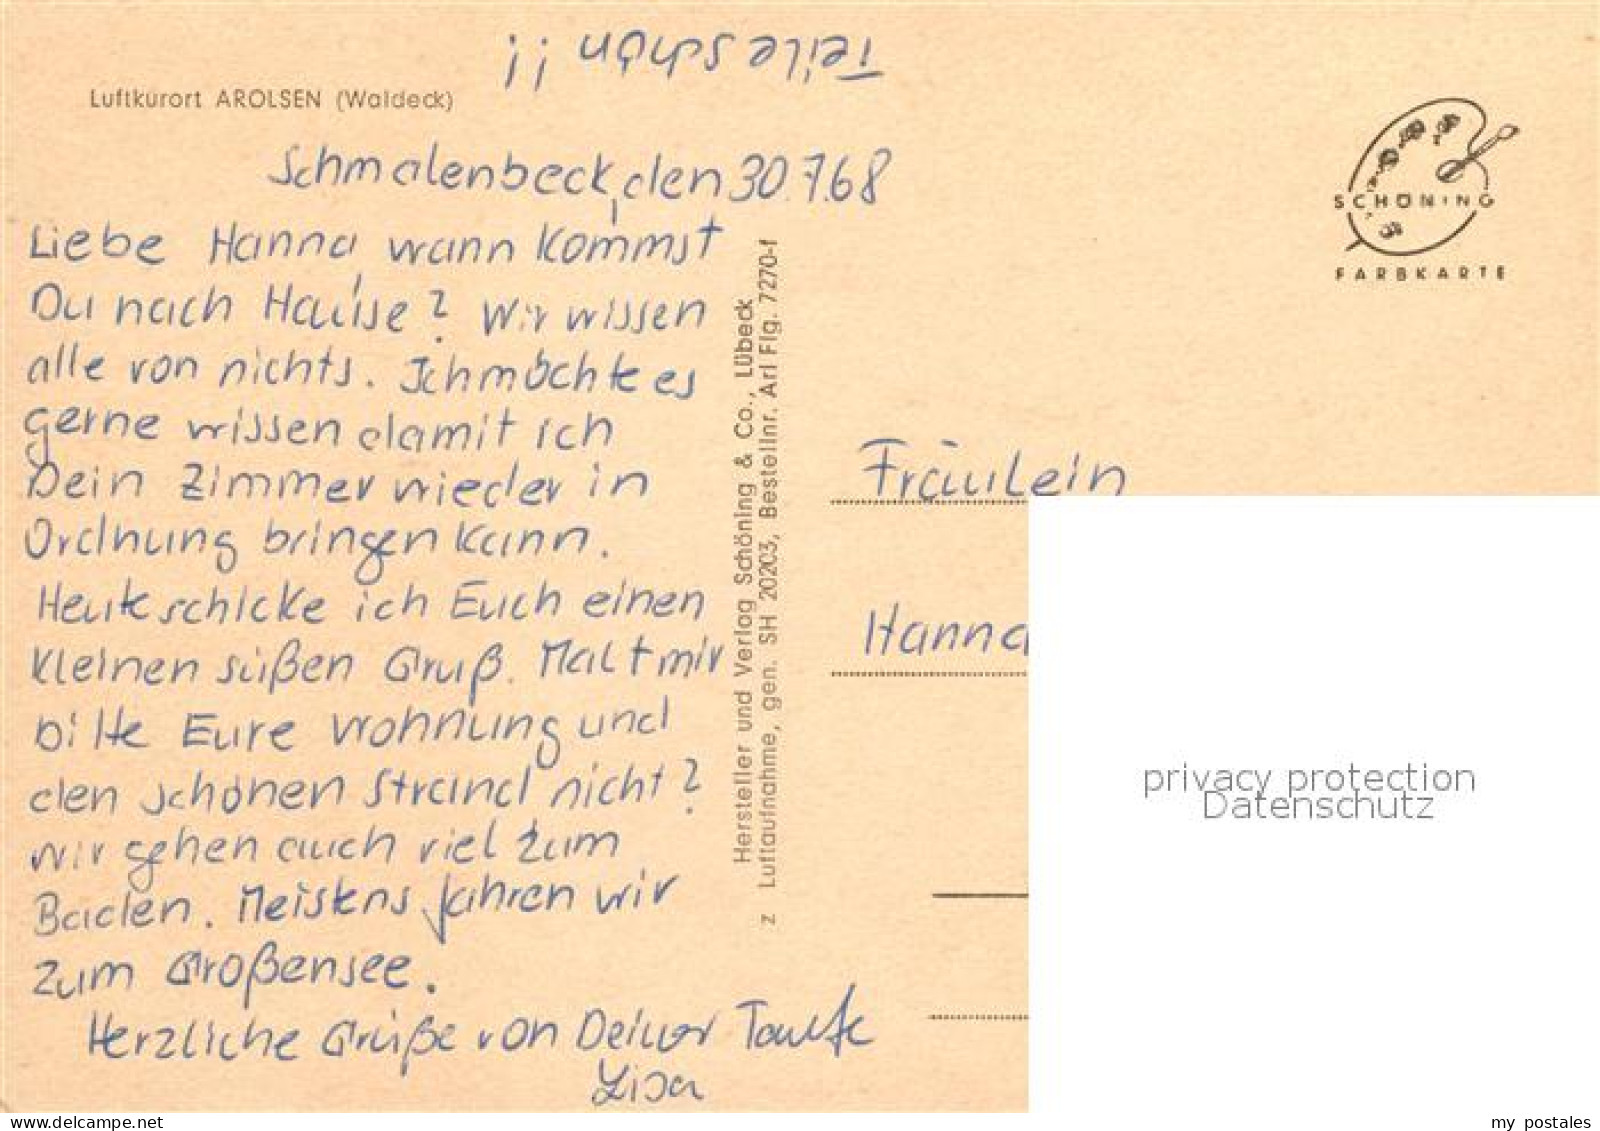 Teile schön !!
Luftkurort AROLSEN (Waldeck)
Schmalenbeck, den 30.7.68
Liebe Hanna wann kommst
Du nach Hause? Wir wissen
alle von nichts. Ich möchte es
gerne wissen damit ich
Dein Zimmer wieder in
Ordnung bringen kann.
Heute schicke ich Euch einen
kleinen süßen Gruß. Malt mir
bitte Eure Wohnung und
den schönen Strand nicht?
Wir gehen auch viel zum
Baden. Meistens fahren wir
zum Großensee.
Herzliche Grüße von Deiner Tante
Lisa
Hersteller und Verlag Schöning & Co., Lübeck
z Luftaufnahme, gen. SH 20203, Bestellnr. Arl Flg. 7270-f
SCHÖNING
FARBKARTE
Fräulein
Hanna
privacy protection
Datenschutz
my postales